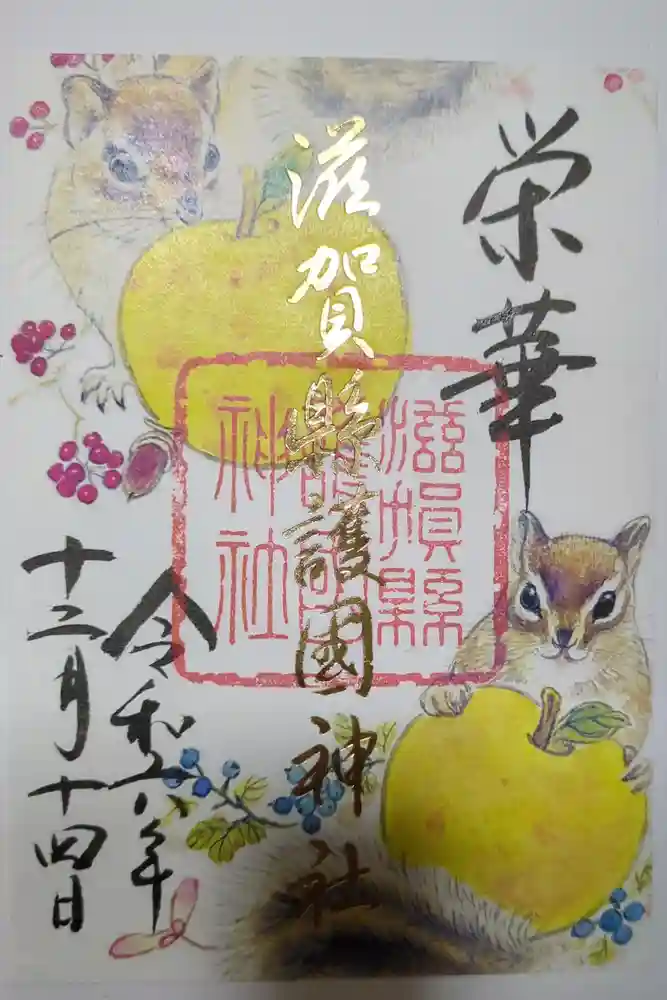 栄華
滋賀縣護國神社
滋賀縣
神社
令和六年
十二月十四日